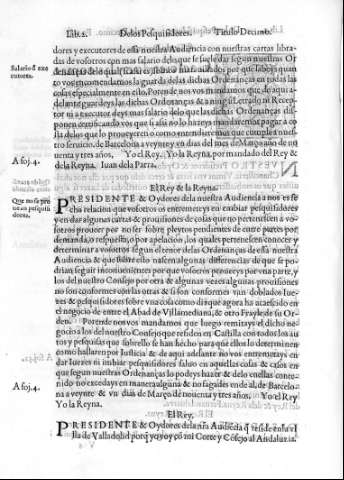 Lib. 2. De los Pesquisidores. Titulo Decimo.
dores y executores de essa nuestra Audiencia con nuestras cartas libra
das de vosotros con mas salario de lo que se suele dar segun nuestras Or
Salario de exe
cutores.
denanças de lo qual
tos vos encomendamos la guarda de las dichas Ordenanças en todas las
cosas especialmente en esto. Porende nos vos mandamos que de aqui a-
delante guardeys las dichas Ordenanças & a ningun Letrado ni Recep
tor ni a executor deys mas salario delo que las dichas Ordenanças dis
ponen certificando vos que si assi no lo hazeys mandaremos pagar a co
sta de los que lo proueyeren como entendieremos que cumple a nues-
tro seruicio, de Barcelona a veynte y un dias del mes de Março año de no
uenta y tres años, Yo el Rey. Yo la reyna, por mandado del Rey &
A foj. 4.
de la Reyna. Iuan de la Parra.
El Rey & la Reyna.
Que no se pro
uean pesquisi
dores.
PRESIDENTE & Oydores de la nuestra Audiencia a nos es fe
cha relacion que vosotros os entremeteys en embiar pesquisidores
y en dar algunas cartas & prouisiones de cosas que no pertenescen a vo-
sotros proueer por no ser sobre pleytos pendientes de entre partes por
demanda, o respuesto, o por apelacion, los quales pertenescen conocer y
determinar a vosotros segun el tenor de las Ordenanças de essa nuestra
Audiencia & que sobre esto nascen algunas diferencias de que se po-
drian seguir inconuenientes por que vosotros proueeys por vna parte, y
los del nuestro Consejo por otra & algunas vezes algunas prouisiones
no son conformes con las otras & si son conformes van doblados Iue-
zes & pesquisidores sobre vna cosa como diz que agora ha acaescido en
el negocio de entre el Abad de Villamediana, & otro Frayle de su Or-
den. Porende nos vos mandamos que luego remitays el dicho ne-
gocio a los del nuestro Consejo que residen en Castilla con todos los au
tos y pesquisas que sobrello se han hecho para que ellos lo determinen
como hallaren por Iusticia & de aqui adelante no vos entremetays en
dar Iuezes ni embiar pesquisidores saluo en aquellas cosas & casos en
que segun nuestras Ordenanças lo podeys hazer & delo en ellas conte-
A foj. 4.
nido no excedays en manera alguna & no fagades ende al, de Barcelo-
na a veynte & vn dias de Março de nouenta y tres años, Yo el Rey
Yo la Reyna.
El Rey.
PRESIDENTE & Oydores de la nra Audiecia q reside en la vi
lla de Valladolid porq yo voy co mi Corte y Cosejo al Andaluzia.